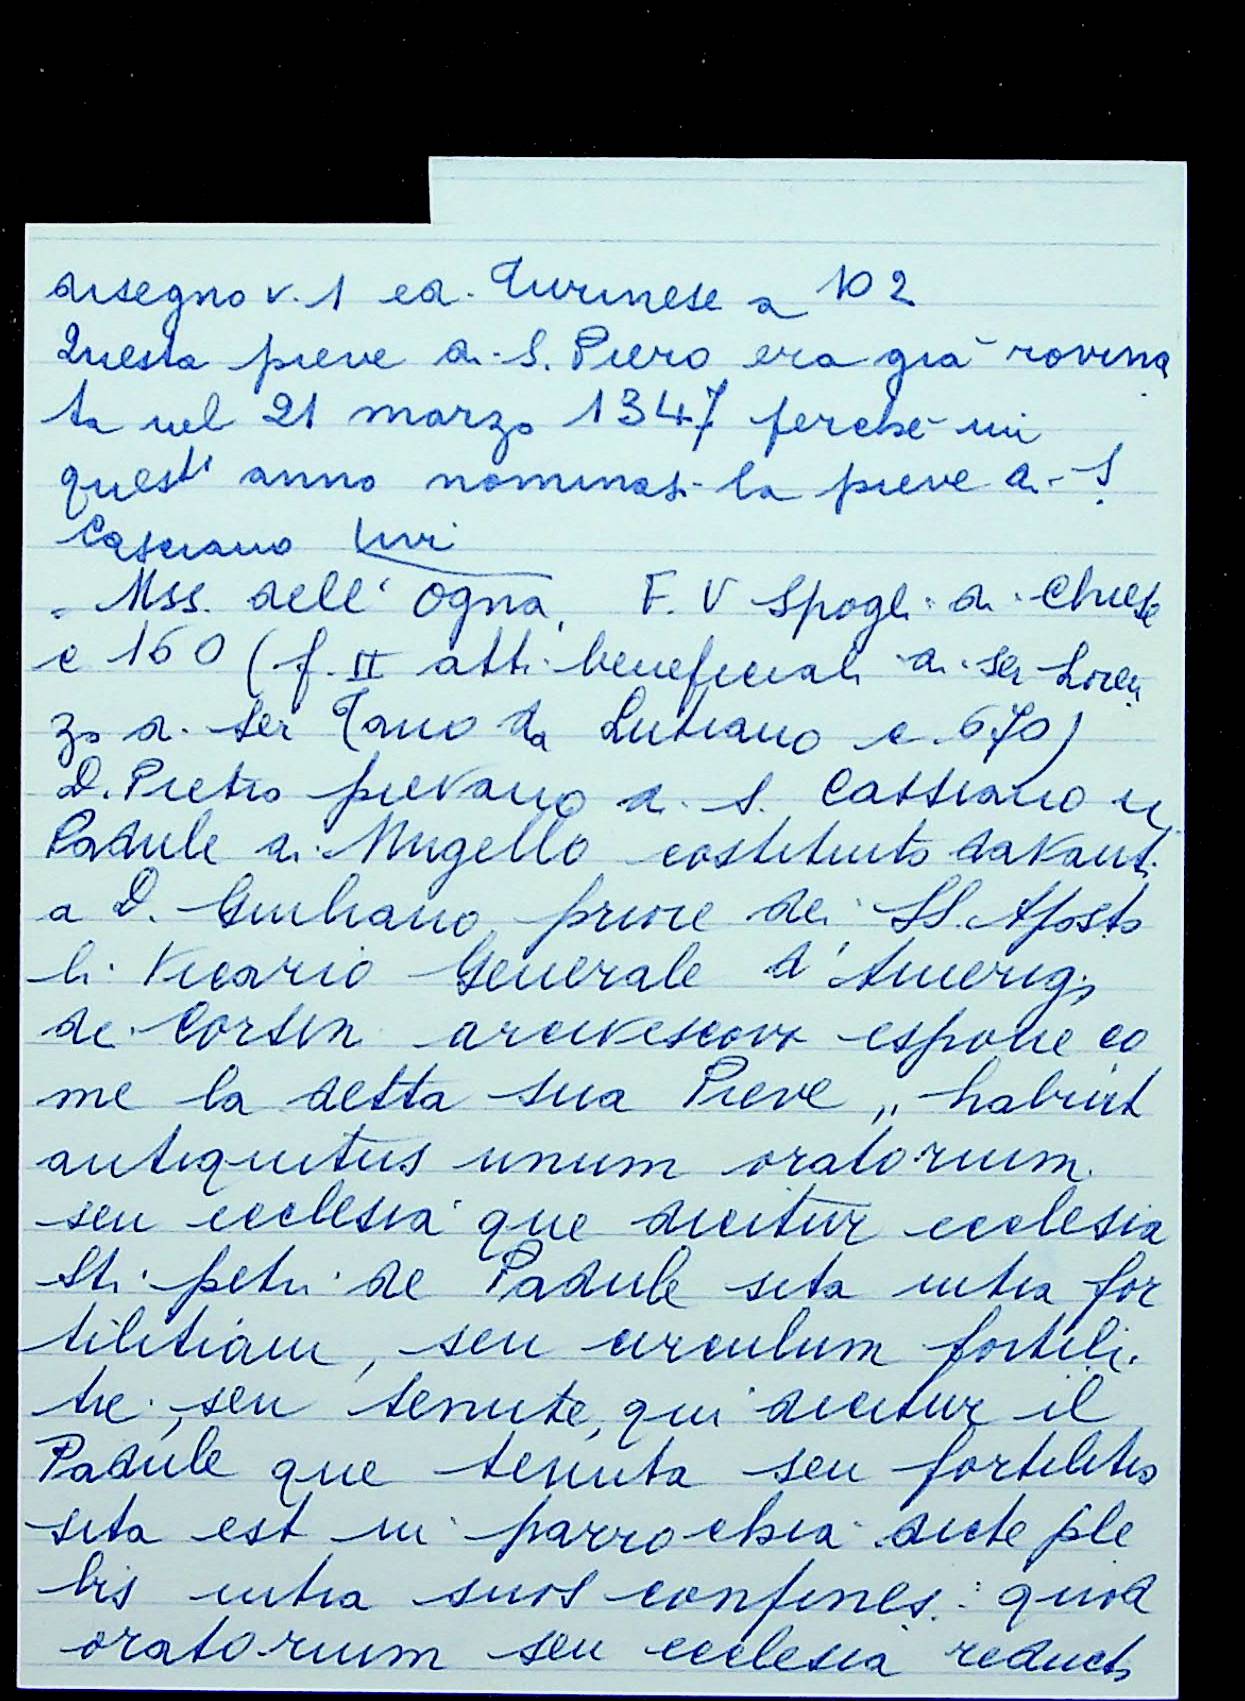 disegno v. 1 ed. Turinese a 102
Questa pieve di S. Piero era già rovina
ta nel 21 marzo 1347 perché in
quest' anno nominasi la pieve di S
Casciano Ivi
Mss. dell' Ogna, F. V Spogli di Chiese
c 160 (f. II atti beneficiali di ser Loren
zo di ser Tano da Lutiano c. 670)
D. Pietro pievano di S. Cassiano in
Padule di Mugello costituito davanti
a D. Giuliano priore dei SS. Aposto
li Vicario Generale d' Amerigo
dei Corsini arcivescovo espone co
me la detta sua Pieve „ habuit
antiquitus unum oratorium
seu ecclesia que dicitur ecclesia
Sti petri de Padule sita intra for
tilitiam, seu circulum fortili
tie, seu tenute, qui dicitur il
Padule que tenuta seu fortilitio
sita est in parrochia dicte ple
bis intra suos confines: quod
oratorium seu ecclesia reducto